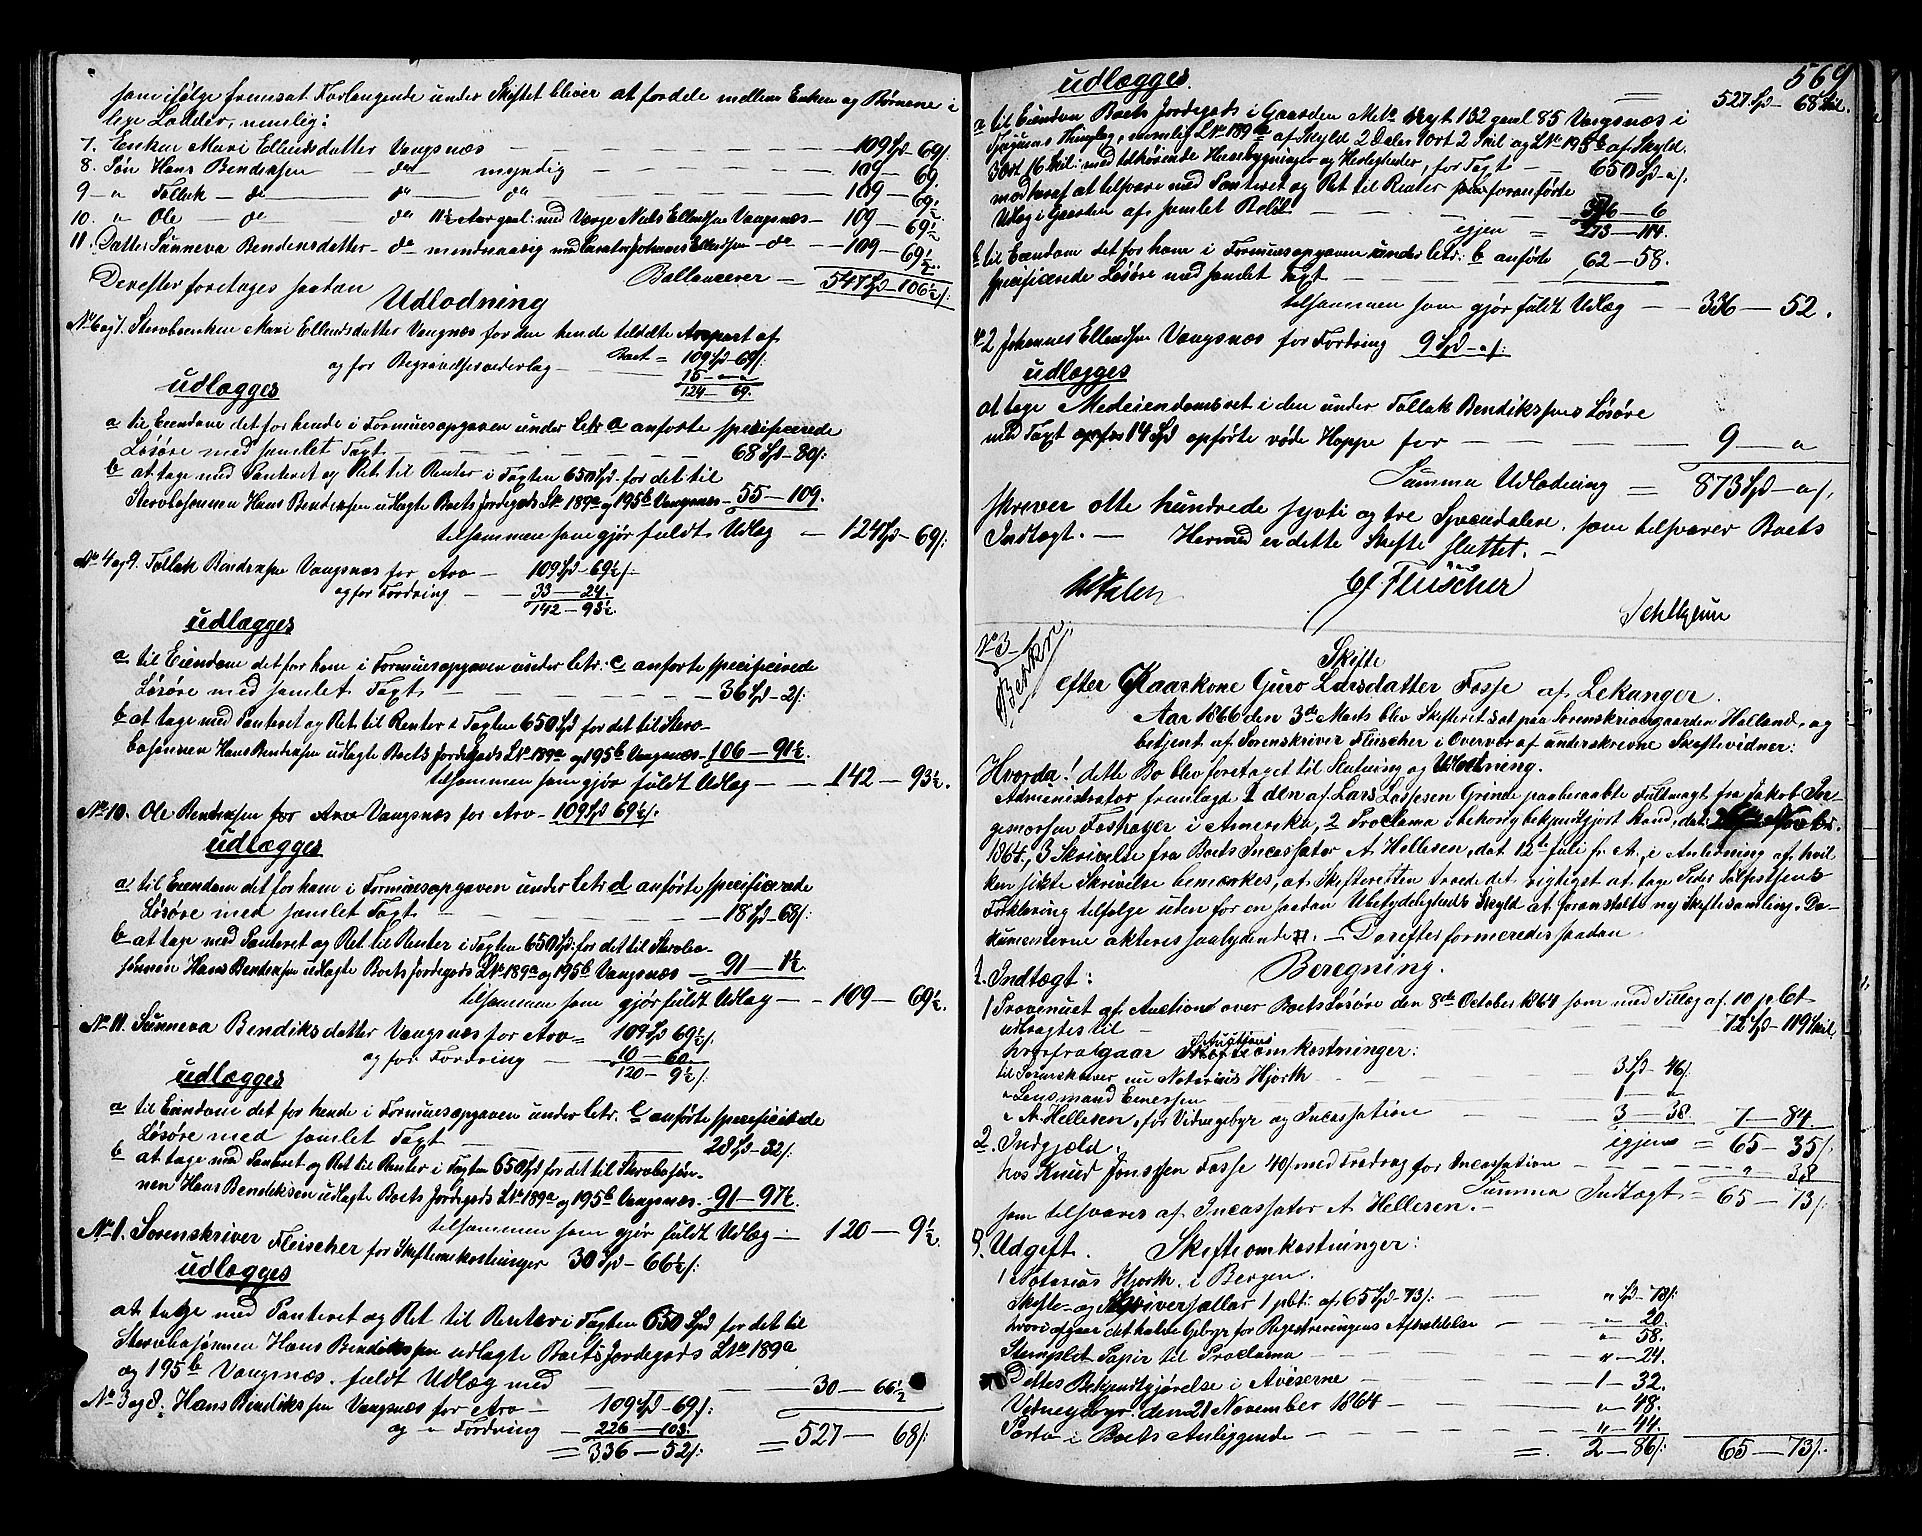 som ifølge fremsat Forlangende under Skiftet bliver at fordele mellem Enken og Børnene i
lige Lodder, nemlig:
7. Enken Mari Ellendsdatter Vangsnæs — 109 Spd – 69/:
8. Søn Hans Bendiksen — do myndig — 109 – 69
9 – " Tollak – do — do do — 109 – 69½
10. " Ole – do — do 11½ Aar gml: med Værge Niels Ellendsen Vangsnæs – 109 – 69½
11. Datter Sünneva Bendiksdatter – do mindreaarig med Curator Johannes Ellendsen – do – 109 – 69½
Ballancerer – 547 Spd – 106½/:
Derefter foretages saadan
Udlodning
No 6 og 7. Stervboenken Mari Ellendsdatter Vangsnæs for den hende tildelte Arvepart af
Boet = 109 Spd – 69/:
og for Begravelsesvederlag — 15 – "
124 – 69.
udlægges
a til Eiendom det for hende i Formuesopgaven under litr a anførte specificerede
Løsøre med samlet Taxt — 68 Spd – 80/:
b at tage med Panteret og Ret til Renter i Taxten 650 Spd. for det til
Stervbosønnen Hans Bendiksen udlagte Boets Jordegods Lno 189a og 195b Vangsnæs – 55 – 109.
tilsammen som gjør fuldt Udlæg — 124 Spd – 69/:
No 4 og 9. Tollak Bendiksen Vangsnæs for Arv — 109 Spd – 69½/:
og for Fordring — 33 – 24.
142 – 93½
udlægges
a til Eiendom det for ham i Formuesopgaven under litr. c anførte specificerede
Løsøre med samlet Taxt — 36 Spd – 2/:
b at tage med Panteret og Ret til Renter i Taxten 650 Spd for det til Stervbo-
bosønnen Hans Bendiksen udlagte Boets Jordegods Lno 189a og 195b Vangsnæs – 106 – 91½.
tilsammen som gjør fuldt Udlæg — 142 – 93½.
No 10. Ole Bendiksen for Arv Vangsnæs for Arv – 109 Spd 69½/:
udlægges
a til Eiendom det for ham i Formuesopgaven under litr d anførte specificerede
Løsøre med samlet Taxt — 18 Spd – 68/:
b at tage med Panteret og Ret til Renter i Taxten 650 Spd: for det til Stervbo-
sønnen Hans Bendiksen udlagte Boets Jordegods Lno 189a og 195b Vangsnæs – 91 – 1½
tilsammen som gjør fuldt Udlæg — 109 – 69½.
No 11. Sünneva Bendiksdatter Vangsnæs for Arv = 109 Spd 69½/:
og for Fordring — 10 – 60.
120 – 9½/:
udlægges
a til Eiendom det for hende i Formuesopgaven under litr. e anførte specificerede
Løsøre med samlet Taxt — 28 Spd – 32/:
b at tage med Panteret og Ret til Renter i Taxten 650 Spd for det til Stervbosøn-
nen Hans Bendiksen udlagte Boets Jordegods Lno 189a og 195b Vangsnæs – 91 – 97½.
tilsammen som gjør fuldt Udlæg — 120 – 9½.
No 1. Sorenskriver Fleischer for Skifteomkostninger 30 Spd – 66½/:
udlægges
at tage med Panteret og Ret til Renter i Taxten 650 Spd for det til
Stervbosønnen Hans Bendiksen udlagte Boets Jordegods Lno 189a
og 195b Vangsnæs, fuldt Udlæg med — 30 – 66½
No 3 og 8. Hans Bendiksen Vangsnæs for Arv – 109 Spd – 69/:
og " Fordring — 226 – 103.
= 336 – 52/: = 527 – 68/:
569
udlægges
527 Spd – 68 Skil.
a til Eiendom Boets Jordegods i Gaarden Mato nyt 132 gml 85 Vangsnæs i
Thinglag, nemlig Lno 189a af Skyld 2 Daler 1 ort 2 Skil og Lno 195b af Skyld.
3 Ort 16 Skil: med tilhørende Huusebygninger og Herligheder, for Taxt — 650 Spd – "/:
modsvaf at tilsvare med Panteret og Ret til Renter foranførte
Udlæg i Gaarden af samlet Beløb — 376 – 6
igjen = 273 – 114.
b til Eiendom det for ham i Formuesopgaven under litr: b anførte
specificerede Løsøre med samlet Taxt — 62 – 58.
tilsammen som gjør fuldt Udlæg — 336 – 52.
No 2 Johannes Ellendsen Vangsnæs for Fordring 9 Spd – "/:
udlægges
at tage Medeiendomsret i den under Tollak Bendiksens Løsøre
med Taxt 14 Spd opførte røde Hoppe for — 9 – "
Summa Udlodning = 873 Spd – "/.
skriver otte hundrede syvti og tre Speciedaler, som tilsvarer Boets
Indtægt. — Hermed er dette Skifte sluttet. —
Fleischer
No 3
Skifte
efter Kaarkone Guro Larsdatter Fosse af Lekanger.
Aar 1866 den 3de Marts blev Skifteret sat paa Sorenskrivergaarden Holland, og
betjent af Sorenskriver Fleischer i Overvær af underskrevne Skiftevidner:
Hvorda! dette Bo blev foretaget til Slutning og Udlodning.
Administrator fremlagde 1 den af Lars Lassesen Grinde paaberaabte Fuldmagt fra Jakob Tor-
gersen i Amerika, 2 Proclama i behørig bekjendtgjort Stand, dat:
1864, 3 Skrivelse fra Boets Incassator A. Hellesen, dat 12te Juli f. A., i Anledning af hvil
ken sidste Skrivelse bemærkes, at Skifteretten troede det rigtigst at tage Peder
Forklaring tilfølge uden for en saadan Ubetydeligheds Skyld at foranstalte ny Skiftesamling. Do-
kumenterne akteres saalydende #. — Derefter formeredes saadan
Beregning.
1. Indtægt:
1 Provenuet af Auction over Boets Løsøre den 8de October 1864 som med Tillæg af 10 pCt
udbragtes til — 72 Spd – 119 Skil
hvorfra gaar Auctions omkostninger:
til Sorenskriver nu Notarius Hjorth — 3 Spd – 46/:
" Lensmand — 1 – "
" A. Hellesen, for Vidnegebyr og Incassation — 3 – 38. 7 – 84.
igjen = 65 – 35/:
2. Indgjeld.
hos Knud Jonssen Fosse 40/ med Fradrag for Incassation — " 38
Summa Indtægt = 65 – 73/:
som tilsvares af Incassator A. Hellesen. –
Udgift. Skifteomkostninger:
1 Notarius Hjorth i Bergen.
Skifte- og Skriversallar 1 pCt: af 65 Spd – 73/: — " Spd – 78/:
hvori afgaar det halve Gebyr for Registreringens Afholdelse — " – 20.
" – 58.
Stemplet Papir til Proclama — " – 24.
Dettes Bekjendtgjørelse i Aviserne — 1 – 32.
Vidnegebyr den 21 November 1864 — " – 48.
Porto i Boets Anliggende — " – 44.
= 2 – 86/: 65 – 73/: